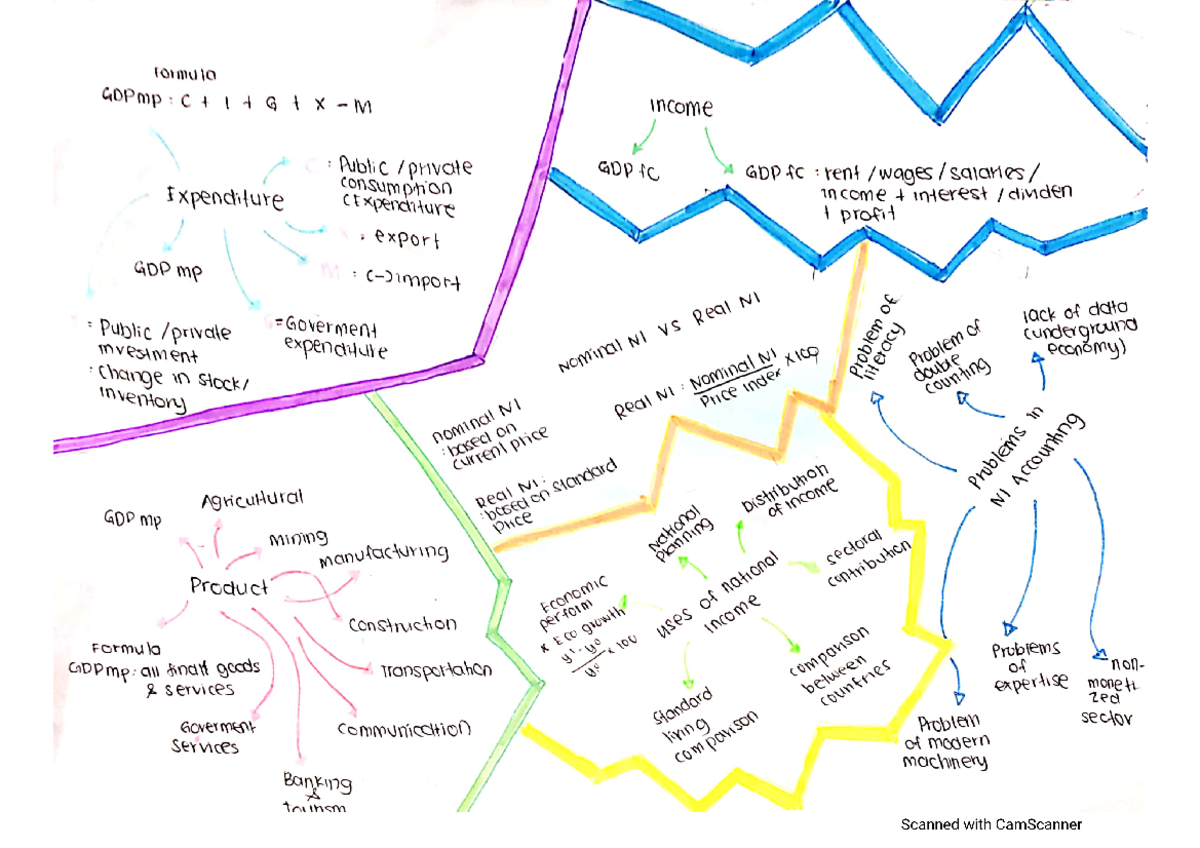 Formula
GDPmp : C + I + G + X - M
Expenditure
C : Public /private
consumption
(Expenditure
X : export
M : (-) import
GDP mp
I : Public /private
investment
: change in stock/
inventory
G =Goverment
expenditure
income
GDP fc
GDP fc : rent /wages/salaries/
income + interest /dividen
+ profit
Nominal NI VS Real NI
Real NI : Nominal NI x100
Price index
nominal NI
: based on
current price
Real NI :
: based on standard
Price
Problem of
literacy
Problem of
double
counting
lack of data
(underground
economy)
Problems in
NI Accounting
Problem
of modern
machinery
Problems
of
expertise
non-
moneti
zed
sector
uses of national
income
National
planning
Distribution
of income
sectoral
contribution
comparison
between
countries
Standard
living
comparison
Economic
perform
x Eco growth
y¹-y⁰ x 100
y⁰
Product
GDP mp
Agricultural
mining
manufacturing
construction
Transportation
communication
Banking
&
tourism
Goverment
services
Formula
GDPmp : all finall goods
& services
Scanned with CamScanner